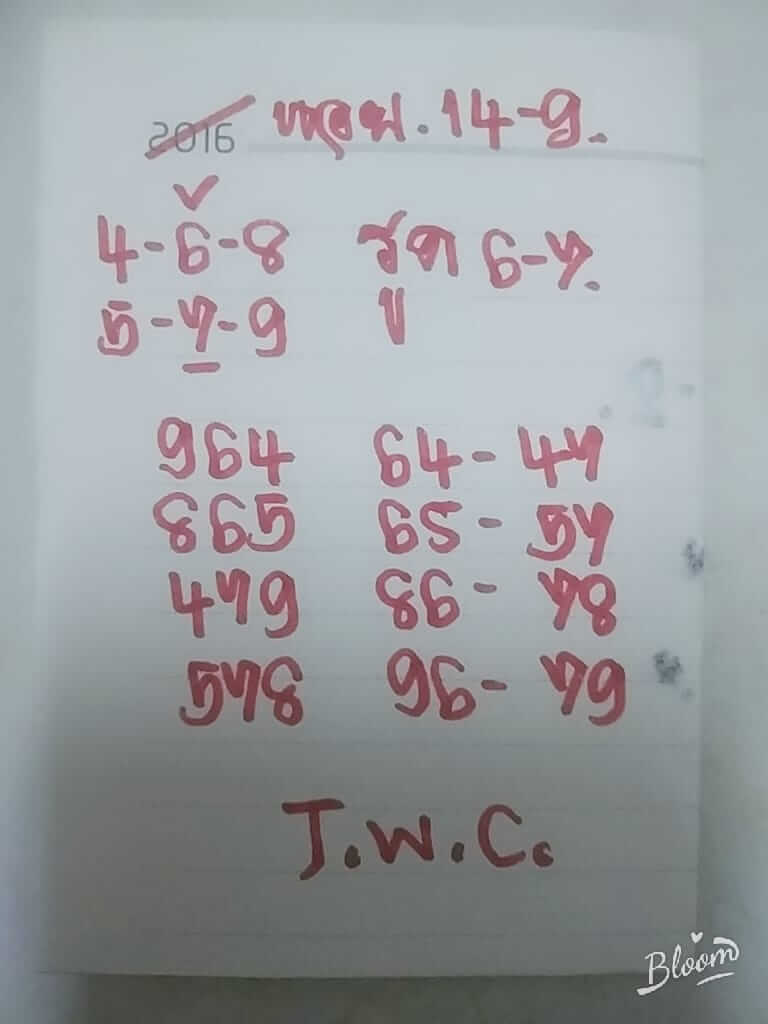 2016 หวย. 14-9.
4-6-8 รูด 6-7.
5-7-9 ปู
964 64- 47
865 65- 57
479 86- 78
578 96- 79
J.W.C.
Bloom